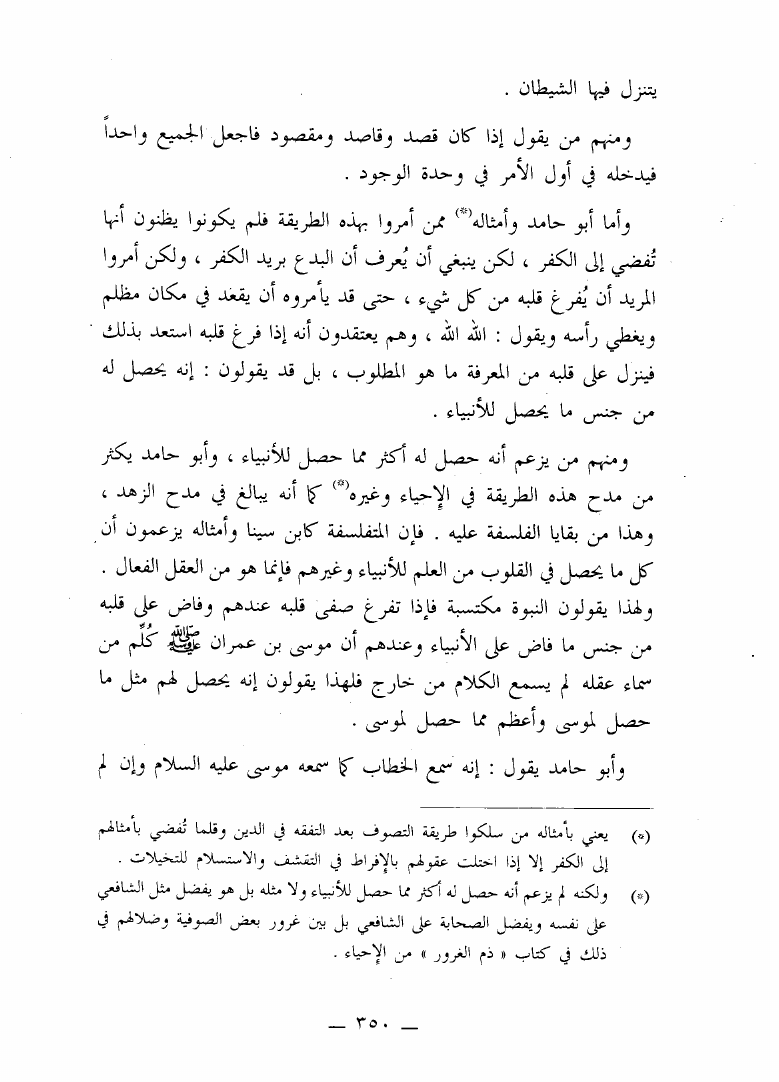 يتنزل فيها الشيطان .
ومنهم من يقول إذا كان قصد وقاصد ومقصود فاجعل الجميع واحداً
فيدخله في أول الأمر في وحدة الوجود .
وأما أبو حامد وأمثاله(*) ممن أمروا بهذه الطريقة فلم يكونوا يظنون أنها
تُفضي إلى الكفر ، لكن ينبغي أن يُعرف أن البدع بريد الكفر ، ولكن أمروا
المريد أن يُفرغ قلبه من كل شيء ، حتى قد يأمروه أن يقعد في مكان مظلم
ويغطي رأسه ويقول : الله الله ، وهم يعتقدون أنه إذا فرغ قلبه استعد بذلك
فينزل على قلبه من المعرفة ما هو المطلوب ، بل قد يقولون : إنه يحصل له
من جنس ما يحصل للأنبياء .
ومنهم من يزعم أنه حصل له أكثر مما حصل للأنبياء ، وأبو حامد يكثر
من مدح هذه الطريقة في الإحياء وغيره(*) كما أنه يبالغ في مدح الزهد ،
وهذا من بقايا الفلسفة عليه . فإن المتفلسفة كابن سينا وأمثاله يزعمون أن
كل ما يحصل في القلوب من العلم للأنبياء وغيرهم فإنما هو من العقل الفعال .
ولهذا يقولون النبوة مكتسبة فإذا تفرغ صفى قلبه عندهم وفاض على قلبه
من جنس ما فاض على الأنبياء وعندهم أن موسى بن عمران ﷺ كُلِّم من
سماء عقله لم يسمع الكلام من خارج فلهذا يقولون إنه يحصل لهم مثل ما
حصل لموسى وأعظم مما حصل لموسى .
وأبو حامد يقول : إنه سمع الخطاب كما سمعه موسى عليه السلام وإن لم
(*) يعني بأمثاله من سلكوا طريقة التصوف بعد التفقه في الدين وقلما تُفضي بأمثالهم
إلى الكفر إلا إذا اختلت عقولهم بالإفراط في التقشف والاستسلام للتخيلات .
(*) ولكنه لم يزعم أنه حصل له أكثر مما حصل للأنبياء ولا مثله بل هو يفضل مثل الشافعي
على نفسه ويفضل الصحابة على الشافعي بل بين غرور بعض الصوفية وضلالهم في
ذلك في كتاب « ذم الغرور » من الإحياء .
— ٣٥٠ —